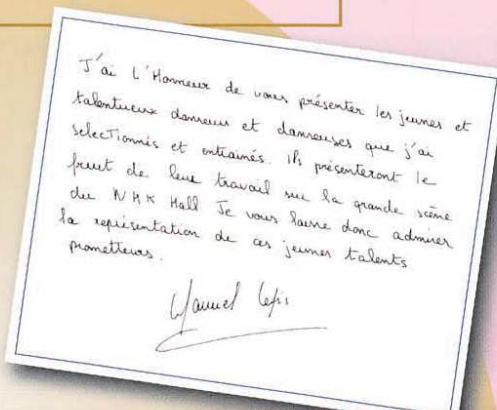 J'ai L'Honneur de vous présenter les jeunes et
talentueux danseurs et danseuses que j'ai
selectionnés et entrainés. Ils présenteront le
fruit de leur travail sur la grande scène
du NHK Hall Je vous laisse donc admirer
la représentation de ces jeunes talents
prometteurs.
Manuel